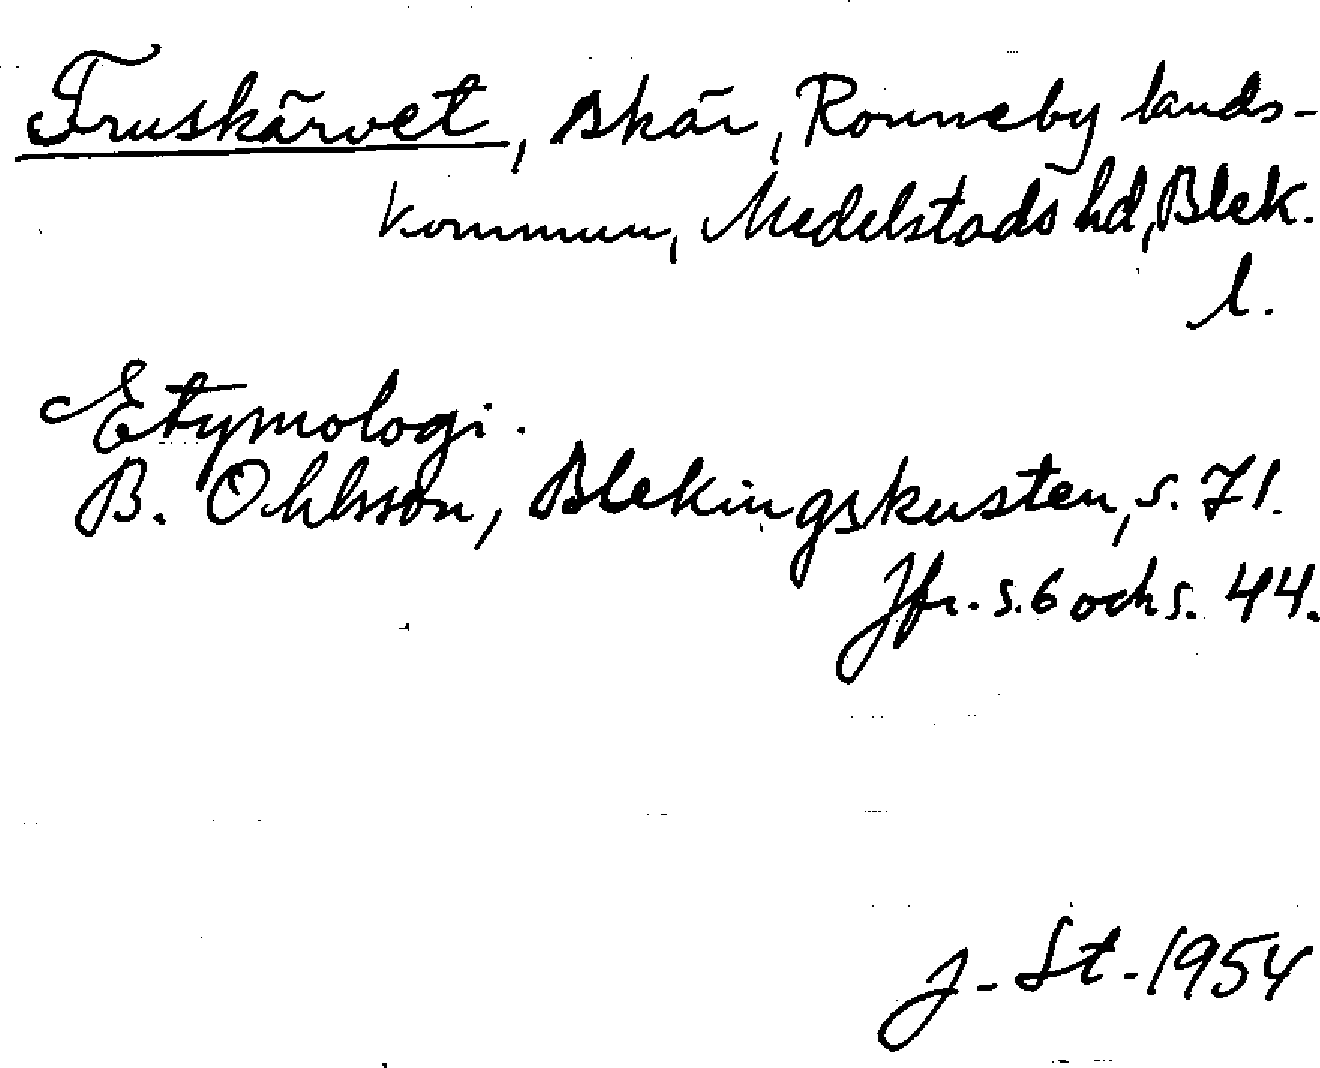 Fruskärvet, skär, Ronneby lands-
kommun, Medelstads hd, Blek.
l.
Etymologi.
B. Ohlsson, Blekingskusten, s. 71.
Jfr. s. 6 och s. 44.
J. St. 1954